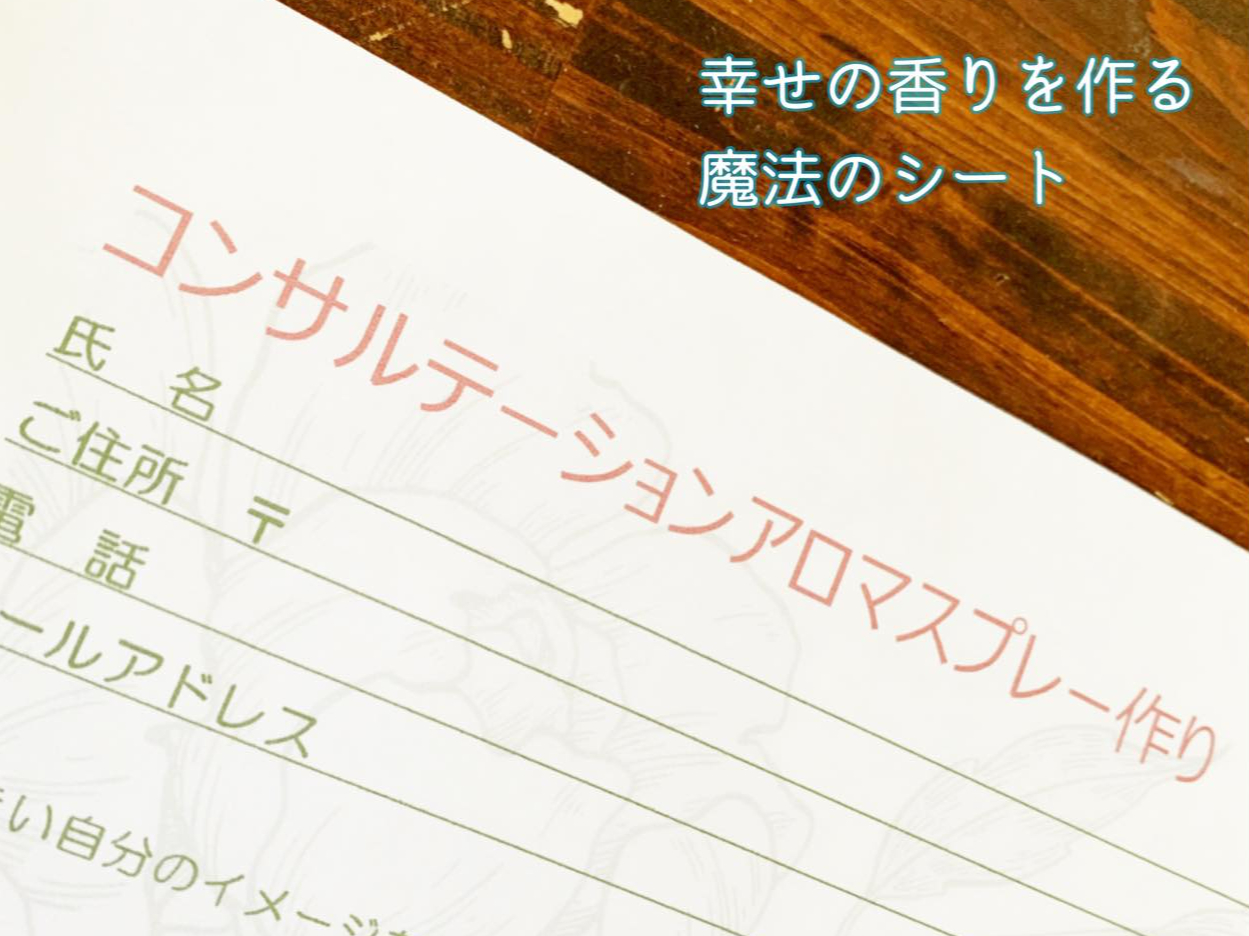 幸せの香りを作る
魔法のシート
コンサルテーションアロマスプレー作り
氏 名
ご住所 〒
電 話
ールアドレス
い自分のイメージ